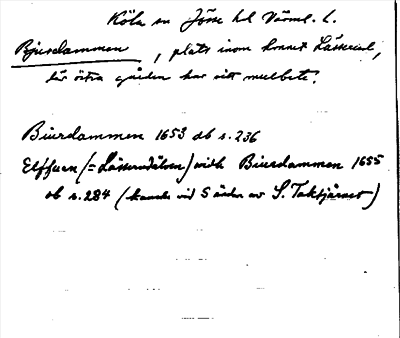 Köla sn Jösse hd Värml. l.
Bjurdammen, plats inom hemmet Lässerud,
där östra gården har sitt mulbete.
Biurdammen 1653 db s. 236
Elffuen (= Lässerudälven) widh Biurdammen 1655
db s. 284 (kanske vid S änden av S. Taktjärnet)